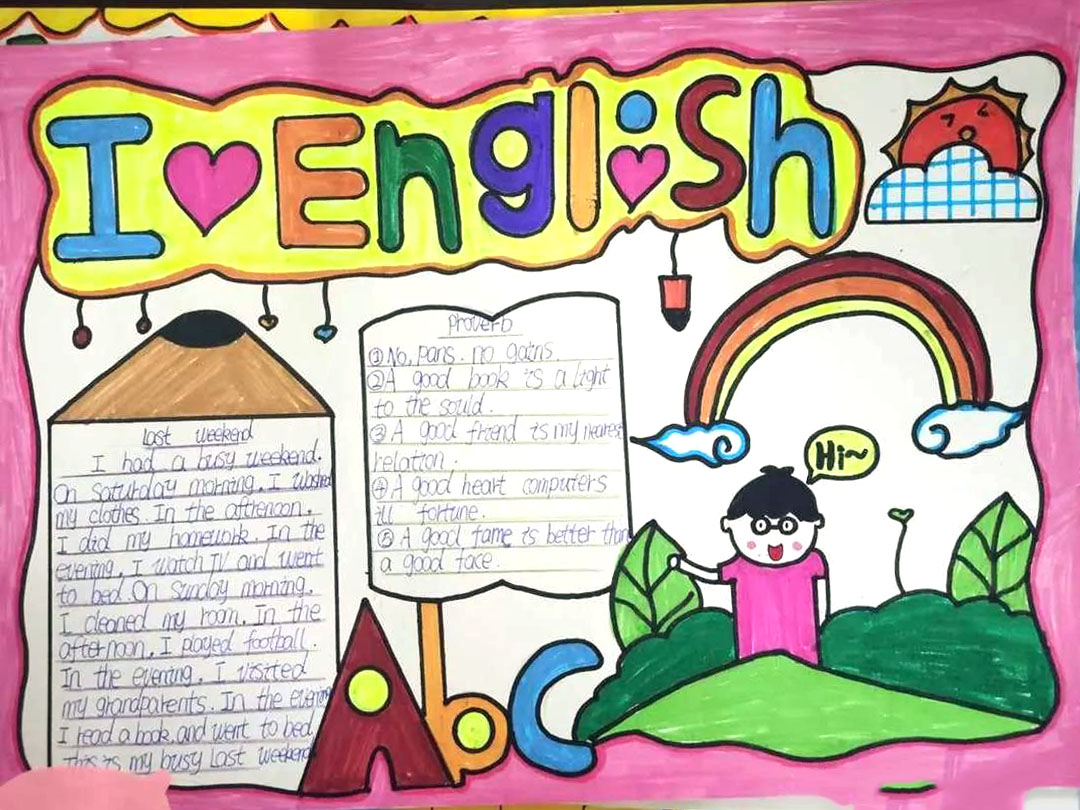 I English
Last weekend
I had a busy weekend.
On Saturday morning. I washed
my clothes. In the afternoon.
I did my homework. In the
evening. I watch TV and went
to bed. On Sunday morning.
I cleaned my room. In the
afternoon. I played football.
In the evening. I visited
my grandparents. In the evening
I read a book. and went to bed.
This is my busy Last weekend
Proverb
①No, pans. no gains.
②A good book is a light
to the sould.
③ A good friend is my nearest
relation.
④ A good heart computers
ill fortune.
⑤ A good fame is better than
a good face.
Hi~
Abc